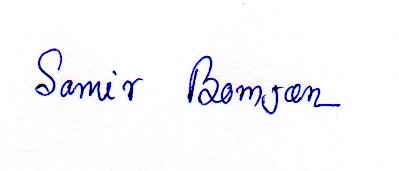 Samir Bomjan